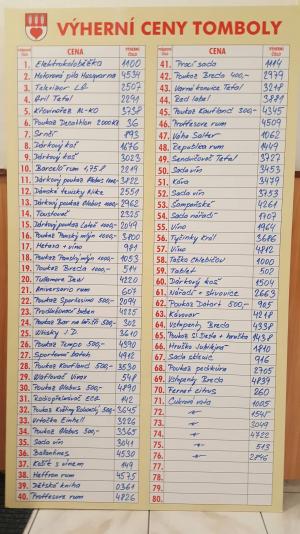 VÝHERNÍ CENY TOMBOLY
CENA
VÝHERNÍ ČÍSLO
1. Elektrokoloběžka 1100
2. Motorová pila Husqvarna 4534
3. Televizor LG 2507
4. Gril Tefal 2291
5. Křovinořez AL-KO 3738
6. Poukaz Decathlon 2000 Kč 36
7. Srnčí 893
8. Dárkový koš 1676
9. Dárkový koš 3023
10. Barceló rum 1,75 l 2219
11. Dárkový poukaz Globus 1000,- 3822
12. Dámské tenisky Nike 2551
13. Dárkový poukaz Globus 1000,- 2962
14. Toustovač 2325
15. Dárkový poukaz 2049
16. Poukaz Panský mlýn 1000,- 3800
17. + víno 981
18. Poukaz Panský mlýn 1000,- 1053
19. Poukaz Breda 1000,- 514
20. Tullamore Dew 4220
21. rum 604
22. Poukaz Sportisimo 500,- 2094
23. Prodlužovací kaben 4225
24. Poukaz Bar na hřišti 500,- 302
25. Whisky J.D. 3610
26. Poukaz Tempo 500,- 4390
27. Sportovní batoh 4912
28. Poukaz Kaufland 500,- 3530
29. Vaflovač 548
30. Poukaz Globus 500,- 4890
31. Radiopřijímač ECG 142
32. Poukaz Knihy 500,- 3645
33. Vrtačka Einhell 3226
34. Poukaz Globus 500,- 3365
35. Sada vín 3041
36. Balantines 4530
37. Košík s vínem 149
38. Heffron rum 4575
39. Dětská kniha 0361
40. Proffesore rum 4826
CENA
VÝHERNÍ ČÍSLO
41. Prací sada 1114
42. Poukaz Breda 400,- 2979
43. Varná konvice Tefal 3218
44. Red label 3881
45. Poukaz Kaufland 300,- 4345
46. Proffesore rum 4509
47. Váha Salter 1062
48. Republica rum 1449
49. Sendvičovač Tefal 3727
50. Sada vín 3453
51. Káva 3437
52. Sada vín 3753
53. Šampaňské 4261
54. Sada nářadí 1707
55. Víno 1964
56. Tyčinky králi 3686
57. Víno 4812
58. Taško chlebíčků 1000
59. Tablet 502
60. Dárkový koš 1504
61. Nářadí + slivovice 2663
62. Poukaz Datart 500,- 905
63. Kávovar 4218
64. Vstupenky Breda 4338
65. + hruška 1438
66. Hruška Jubilejní 1810
67. Sada sklenic 916
68. Poukaz pedikúra 2705
69. Vstupenky Breda 4839
70. Fernet citrus 260
71. Cukrová vata 1005
72. -"- 1545
73. -"- 3049
74. -"- 4322
75. -"- 513
76. -"- 2846
77.
78.
79.
80.